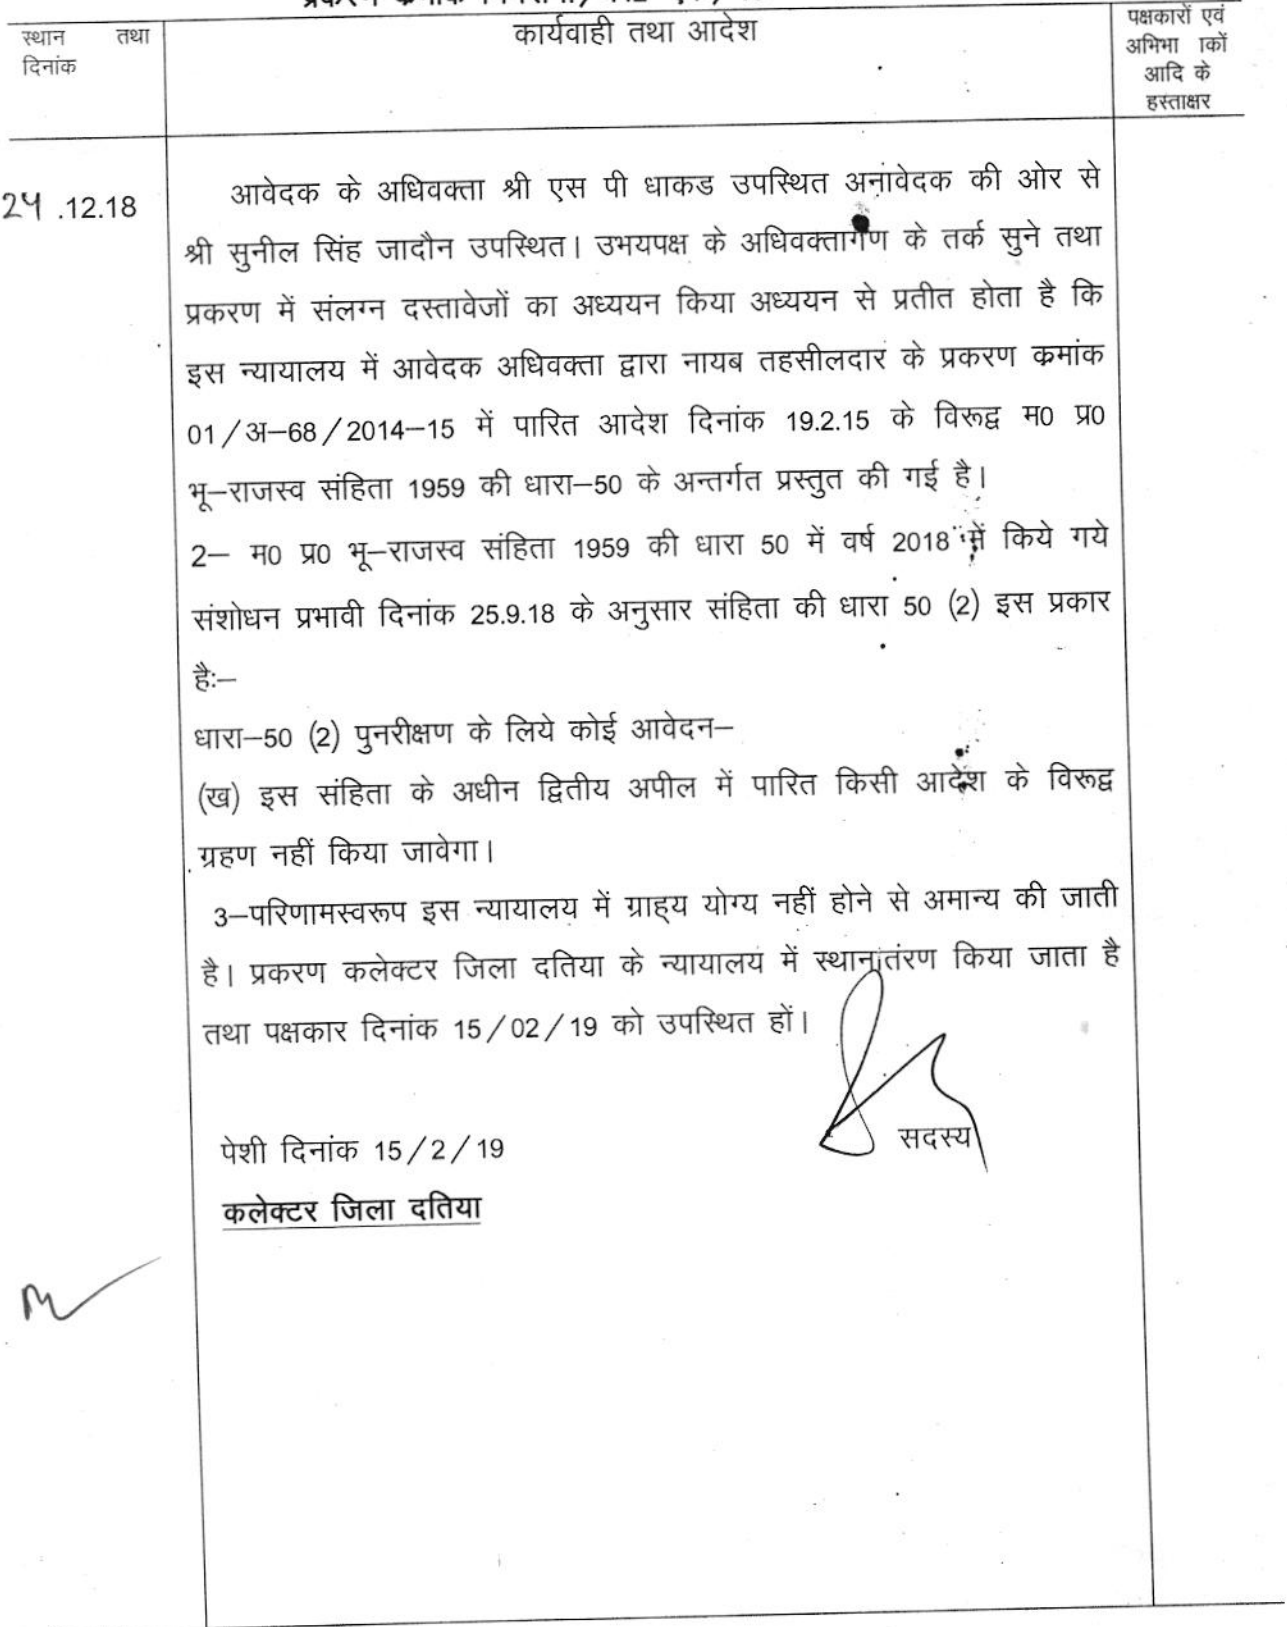 स्थान तथा
दिनांक
कार्यवाही तथा आदेश
पक्षकारों एवं
आदि के
हस्ताक्षर
24.12.18
आवेदक के अधिवक्ता श्री एस पी धाकड उपस्थित अनावेदक की ओर से
श्री सुनील सिंह जादौन उपस्थित। उभयपक्ष के अधिवक्तागण के तर्क सुने तथा
प्रकरण में संलग्न दस्तावेजों का अध्ययन किया अध्ययन से प्रतीत होता है कि
इस न्यायालय में आवेदक अधिवक्ता द्वारा नायब तहसीलदार के प्रकरण क्रमांक
01/अ–68/2014–15 में पारित आदेश दिनांक 19.2.15 के विरूद्व म0 प्र0
भू–राजस्व संहिता 1959 की धारा–50 के अन्तर्गत प्रस्तुत की गई है।
2– म0 प्र0 भू–राजस्व संहिता 1959 की धारा 50 में वर्ष 2018 में किये गये
संशोधन प्रभावी दिनांक 25.9.18 के अनुसार संहिता की धारा 50 (2) इस प्रकार
है:–
धारा–50 (2) पुनरीक्षण के लिये कोई आवेदन–
(ख) इस संहिता के अधीन द्वितीय अपील में पारित किसी आदेश के विरूद्व
ग्रहण नहीं किया जावेगा।
3–परिणामस्वरूप इस न्यायालय में ग्राह्य योग्य नहीं होने से अमान्य की जाती
है। प्रकरण कलेक्टर जिला दतिया के न्यायालय में स्थानातंरण किया जाता है
तथा पक्षकार दिनांक 15/02/19 को उपस्थित हों।
सदस्य
पेशी दिनांक 15/2/19
कलेक्टर जिला दतिया